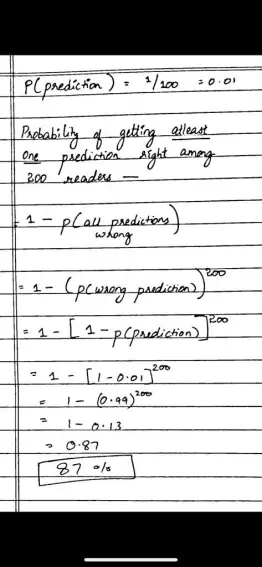 P(prediction) = 1/100 = 0.01
Probability of getting atleast
one prediction right among
200 readers —
= 1 - p(all predictions wrong)
= 1 - (p(wrong prediction))^200
= 1 - [1 - p(prediction)]^200
= 1 - [1-0.01]^200
= 1 - (0.99)^200
= 1 - 0.13
= 0.87
87 %